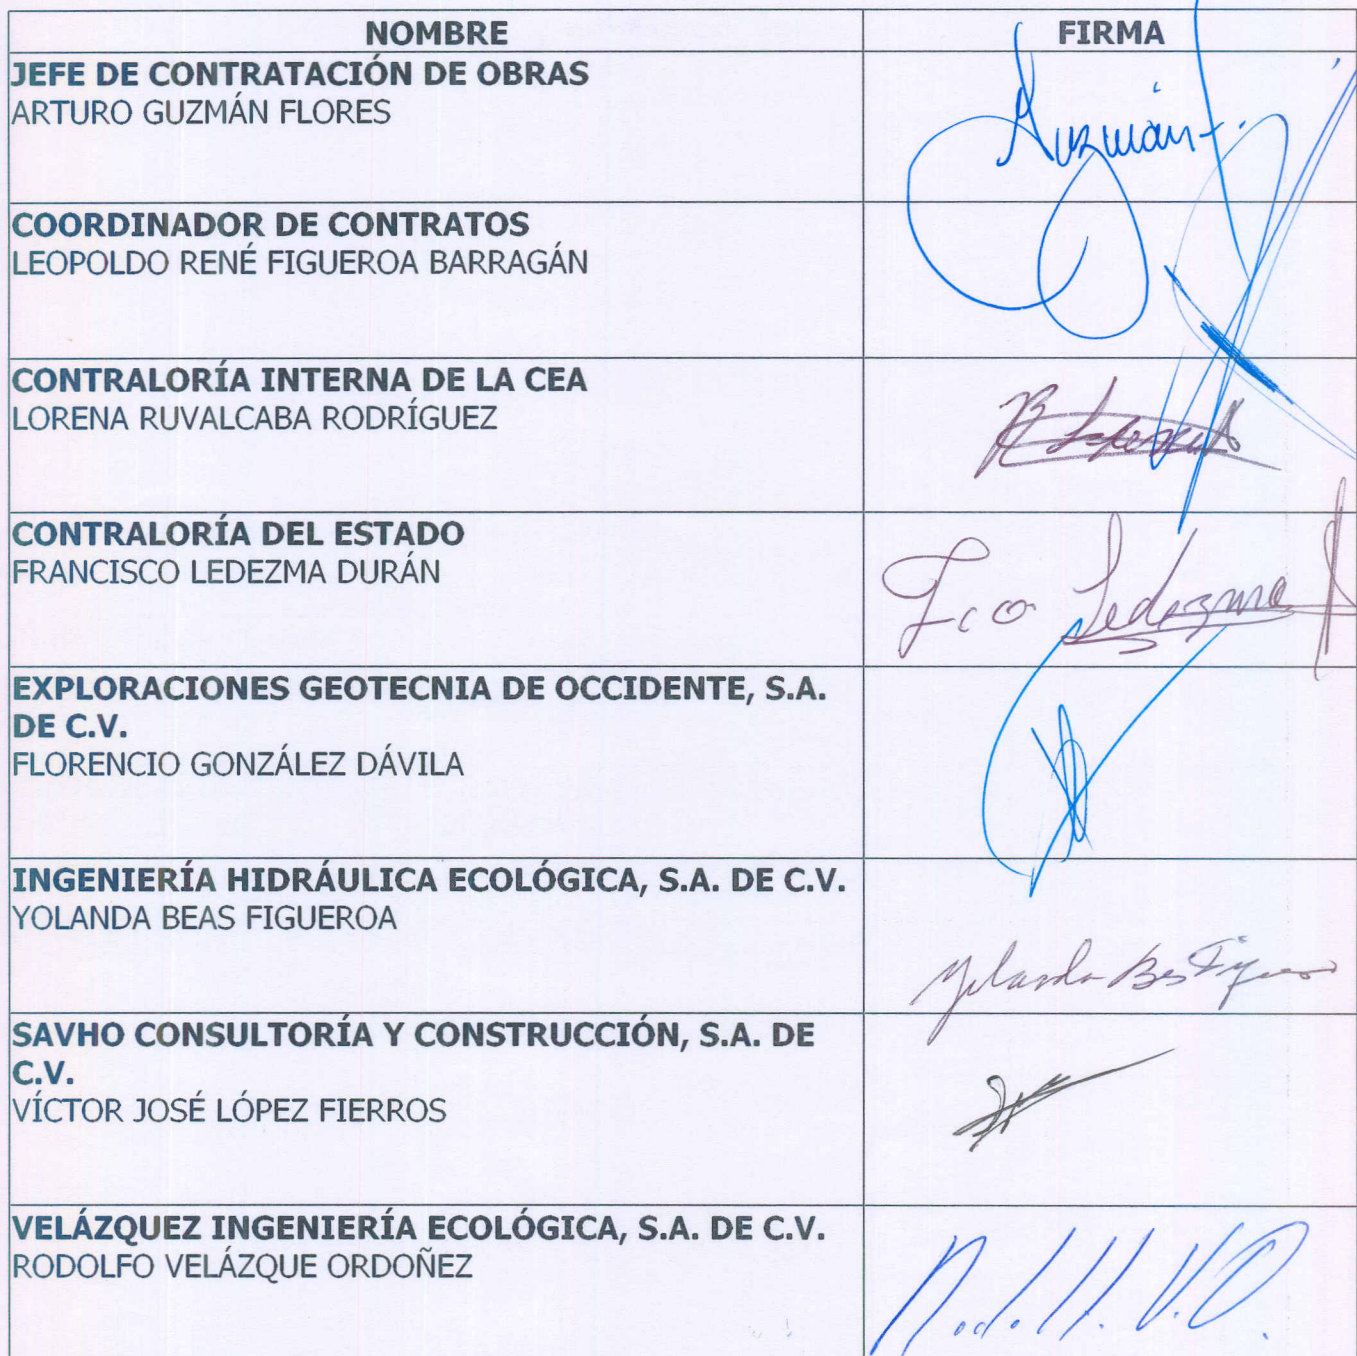 NOMBRE FIRMA
JEFE DE CONTRATACIÓN DE OBRAS
ARTURO GUZMÁN FLORES
Guzmán F.
COORDINADOR DE CONTRATOS
LEOPOLDO RENÉ FIGUEROA BARRAGÁN
CONTRALORÍA INTERNA DE LA CEA
LORENA RUVALCABA RODRÍGUEZ
CONTRALORÍA DEL ESTADO
FRANCISCO LEDEZMA DURÁN
Fco Ledezma
EXPLORACIONES GEOTECNIA DE OCCIDENTE, S.A.
DE C.V.
FLORENCIO GONZÁLEZ DÁVILA
INGENIERÍA HIDRÁULICA ECOLÓGICA, S.A. DE C.V.
YOLANDA BEAS FIGUEROA
Yolanda Beas Figueroa
SAVHO CONSULTORÍA Y CONSTRUCCIÓN, S.A. DE
C.V.
VÍCTOR JOSÉ LÓPEZ FIERROS
VELÁZQUEZ INGENIERÍA ECOLÓGICA, S.A. DE C.V.
RODOLFO VELÁZQUE ORDOÑEZ
Rodolfo V.O.